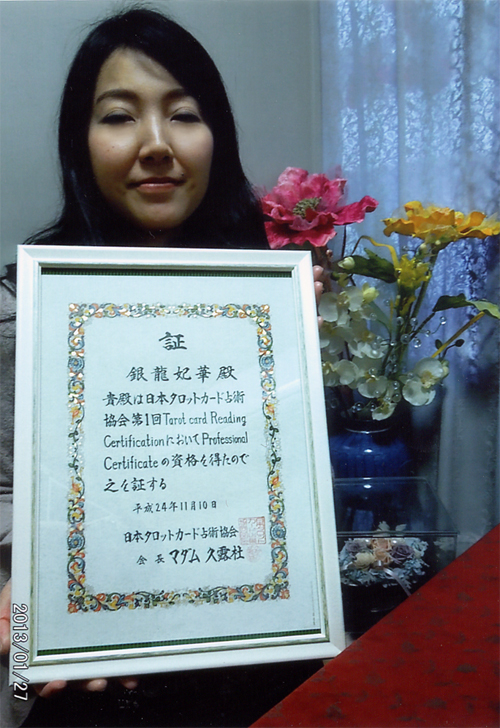 証
銀龍妃華殿
貴殿は日本タロットカード占術
協会第1回Tarot card Reading
CertificationにおいてProfessional
Certificateの資格を得たので
之を証する
平成24年11月10日
日本タロットカード占術協会
会長 マダム 久露社
2013/01/27